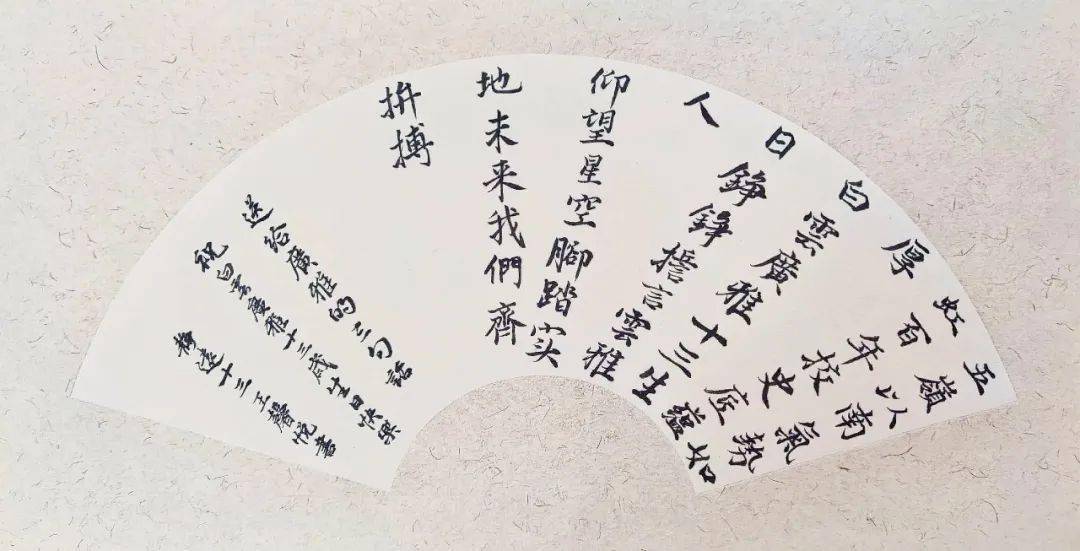 五嶺以南氣勢如
虹百年校史底蘊
厚
白雲廣雅十三生
日錚錚擔言雲雅
人
仰望星空腳踏实
地未来我們齊
拚搏
送给廣雅的三句話
祝白雲廣雅十三歲生日快樂
遠十三王馨悦書